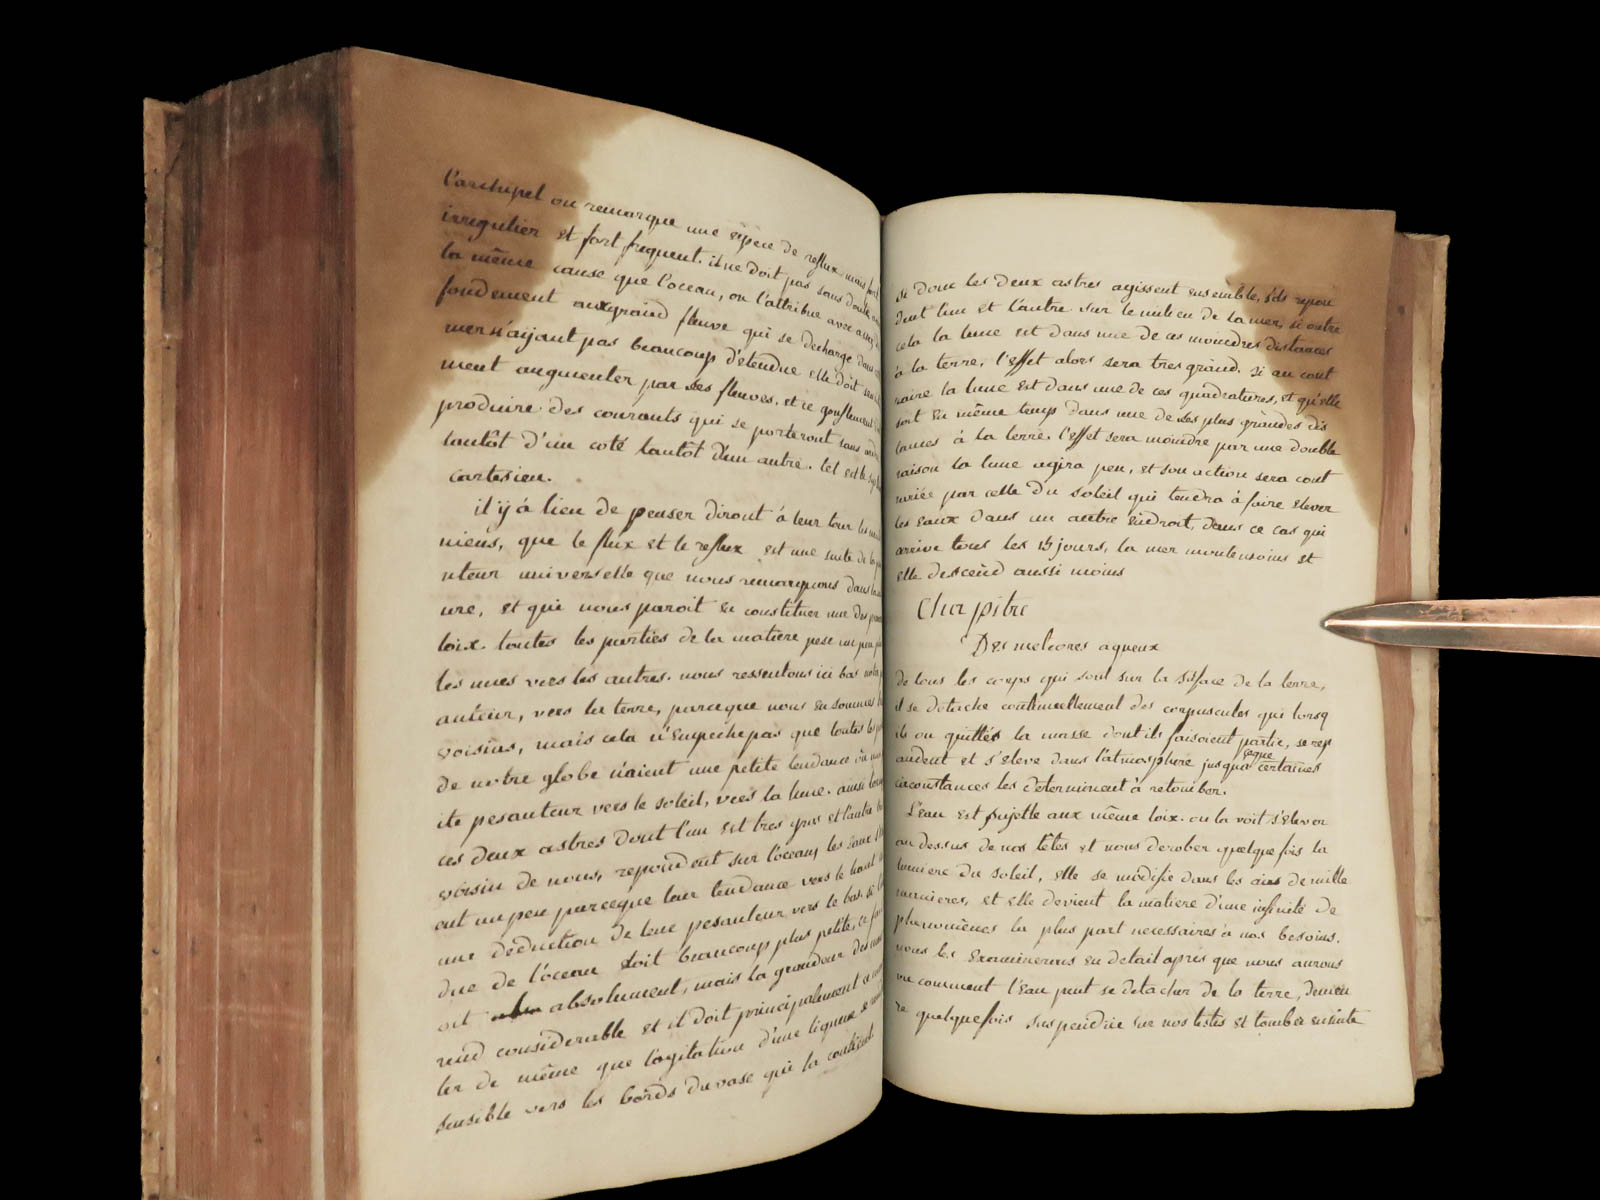 l'archipel on remarque une espece de reflux mais fort
irregulier et fort frequent. il ne doit pas sans doute
la même cause que l'ocean, on l'attribue avec
fondement aux grand fleuve qui se decharge dans
mer n'ayant pas beaucoup d'étendue elle doit
ment augmenter par ses fleuves. et ce gonflement
produire des courants qui se porteront sans
tautôt d'un coté tautôt d'un autre. tel est le
cartesien.
il y á lieu de penser diront á leur tour les
niens, que le flux et le reflux est une suite de la
nteur universelle que nous remarquons dans la
ure, et qui nous paroit en constituer une des
loix. toutes les parties de la matiere pese un peu
les unes vers les autres. nous ressentons ici bas
anteur, vers la terre, parceque nous en sommes
voisins, mais cela n'empeche pas que toutes les
de notre globe n'aient une petite tendance ou
ite pesanteur vers le soleil, vers la lune. ainsi
ces deux astres dont l'un est tres gros et l'autre
voisin de nous, repondent sur l'ocean, les eaux
ont un peu parceque leur tendance vers le haut
une deduction de leur pesanteur vers le bas. si
due de l'ocean etoit beaucoup plus petite, ce
oit absolument, mais la grandeur des
rend considerable et il doit principalement
ler de même que l'agitation d'une liqueur
sensible vers les bords du vase qui la contient.
si donc les deux astres agissent ensemble, s'ils repon
dent l'un et l'autre sur le milieu de la mer, si outre
cela la lune est dans une de ces moindres distances
à la terre, l'effet alors sera tres grand. si au cont
raire la lune est dans une de ces quadratures, et qu'elle
soit en même temps dans une de ses plus grandes dis
tances à la terre. l'effet sera moindre par une double
raison la lune agira peu, et son action sera cont
rariée par celle du soleil qui tendra à faire elever
les eaux dans un autre endroit, dans ce cas qui
arrive tous les 15 jours, la mer monte moins et
elle descend aussi moins
Chapitre
Des meteores aqueux
de tous les corps qui sont sur la surface de la terre,
il se detache continuellement des corpuscules qui lorsq
ils on quittés la masse dont ils faisoient partie, se rep
andent et s'éleve dans l'atmosphere jusqua ceque certaines
circonstances les determinent à retomber.
L'eau est sujette aux même loix. on la voit s'elever
au dessus de nos têtes et nous derober quelquefois la
lumiere du soleil, elle se modifie dans les airs de mille
manieres, et elle devient la matiere d'une infinité de
phenomènes la plus part necessaires à nos besoins.
nous les examinerons en detail apres que nous aurons
vu comment l'eau peut se detacher de la terre, demeu
re quelquefois suspendue sur nos testes et tomber ensuite